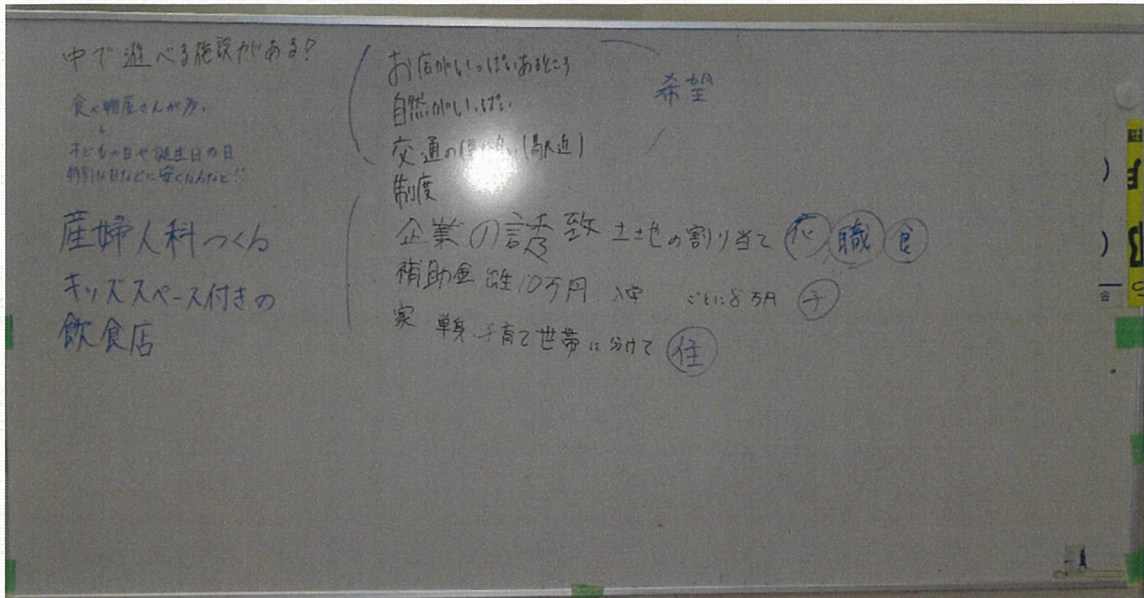 中で遊べる施設がある!
食べ物屋さんが多い
↓
子どもの日や誕生日の日
特別な日などに安くなるなど!!
産婦人科つくる
キッズスペース付きの
飲食店
お店がいっぱいあるところ
自然がいっぱい
希望
交通の
制度
企業の誘致 土地の割り当て 職 食
補助金 出生10万円 ごとに8万円 子
家 単身、子育て世帯に分けて 住
会